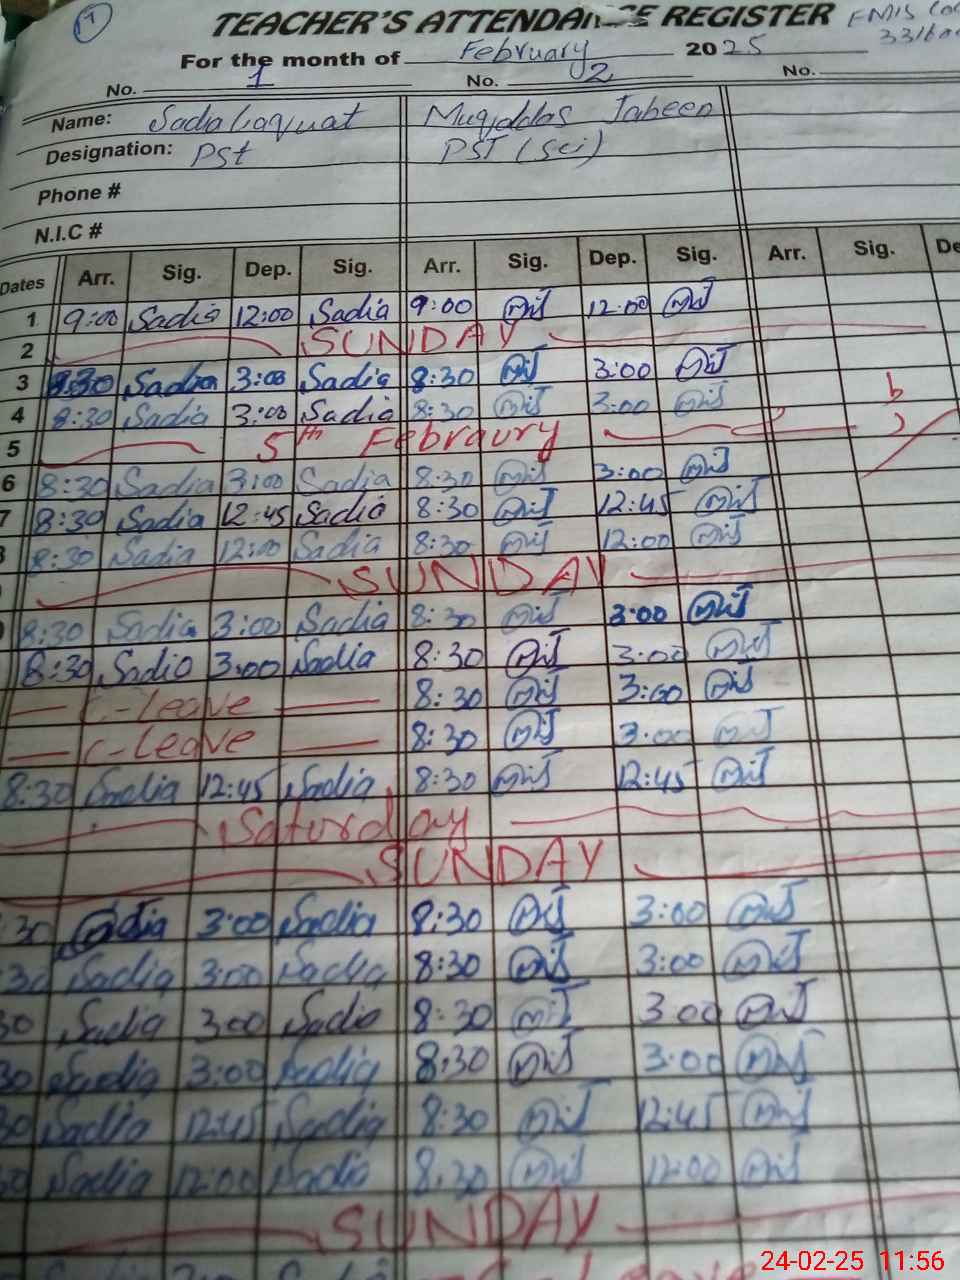 1
TEACHER'S ATTENDANCE REGISTER
For the month of February 2025
No. 1 No. 2 No.
Name: Sadia Laquat Muqddas Jabeen
Designation: PSt PST (sci)
Phone #
N.I.C #
Dates Arr. Sig. Dep. Sig. Arr. Sig. Dep. Sig. Arr. Sig. De
1 9:00 Sadia 12:00 Sadia 9:00 12:00
2 SUNDAY
3 8:30 Sadia 3:00 Sadia 8:30 3:00
4 8:30 Sadia 3:00 Sadia 8:30 3:00
5 5th Febraury
6 8:30 Sadia 3:00 Sadia 8:30 3:00
7 8:30 Sadia 12:45 Sadia 8:30 12:45
8:30 Sadia 12:00 Sadia 8:30 12:00
SUNDAY
8:30 Sadia 3:00 Sadia 8:30 3:00
8:30 Sadia 3:00 Sadia 8:30 3:00
C-Leave 8:30 3:00
C-Leave 8:30 3:00
8:30 Sadia 12:45 Sadia 8:30 12:45
Saturday
SUNDAY
30 Sadia 3:00 Sadia 8:30 3:00
30 Sadia 3:00 Sadia 8:30 3:00
30 Sadia 3:00 Sadia 8:30 3:00
30 Sadia 3:00 Sadia 8:30 3:00
30 Sadia 12:45 Sadia 8:30 12:45
30 Sadia 12:00 Sadia 8:30 12:00
SUNDAY
24-02-25 11:56